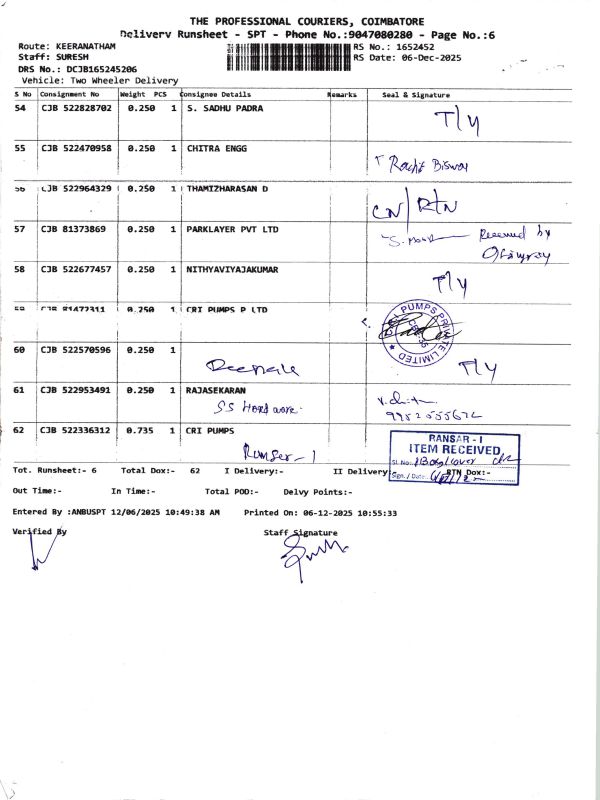 THE PROFESSIONAL COURIERS, COIMBATORE
Delivery Runsheet - SPT - Phone No.:9047080280 - Page No.:6
Route: KEERANATHAM RS No.: 1652452
Staff: SURESH RS Date: 06-Dec-2025
DRS No.: DCJB165245206
Vehicle: Two Wheeler Delivery
S No Consignment No Weight PCS Consignee Details Remarks Seal & Signature
54 CJB 522828702 0.250 1 S. SADHU PADRA
T/y
55 CJB 522470958 0.250 1 CHITRA ENGG
56 CJB 522964329 0.250 1 THAMIZHARASAN D
CN/RTN
57 CJB 81373869 0.250 1 PARKLAYER PVT LTD
Received by
58 CJB 522677457 0.250 1 NITHYAVIYAJAKUMAR
T/y
59 CJB 81472311 0.250 1 CRI PUMPS P LTD
PUMPS PRIVATE LIMITED
60 CJB 522570596 0.250 1
T/y
61 CJB 522953491 0.250 1 RAJASEKARAN
SS Hardware
62 CJB 522336312 0.735 1 CRI PUMPS
RANSAR - I
ITEM RECEIVED
Sl. No.
Sign. / Date
Tot. Runsheet:- 6 Total Dox:- 62 I Delivery:- II Delivery:- RTN Dox:-
Out Time:- In Time:- Total POD:- Delvy Points:-
Entered By :ANBUSPT 12/06/2025 10:49:38 AM Printed On: 06-12-2025 10:55:33
Verified By Staff Signature